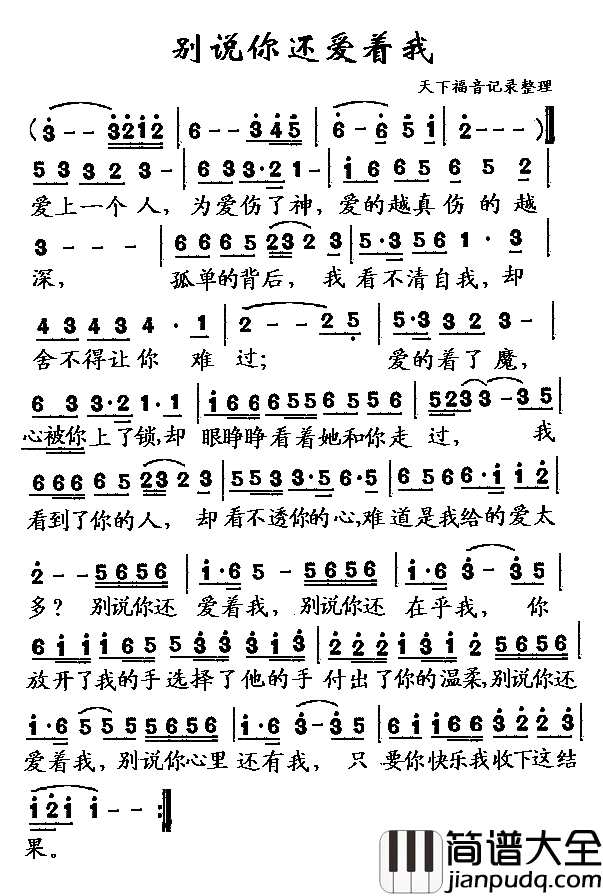 别说你还爱着我
天下福音记录整理
(3 - - 3212 | 6 - - 345 | 6 - · 6 5 1 | 2 - - - )
5 3 3 3 2 3 - | 6 3 3 3·2 1 - | 1 6 6 5 6 5 2 |
爱上一个人，为爱伤了神，爱的越真伤的越
3 - - - | 6 6 6 5 23 2 3 | 5·3 5 6 1 · 3 |
深，孤单的背后，我看不清自我，却
4 3 4 3 4 · 1 | 2 - - 2 5 | 5·3 3 2 3 - |
舍不得让你难过；爱的着了魔，
6 3 3·2 1·1 | 1 6 6 6 5 5 6 5 5 6 | 5 2 3 3 - 3 5 |
心被你上了锁，却眼睁睁看着她和你走过，我
6 6 6 6 5 23 2 3 | 5 5 3 5 5 6·5 | 6 6 6 6·1 1 2 |
看到了你的人，却看不透你的心，难道是我给的爱太
2 - - 5 6 5 6 | 1·6 5 - 5 6 5 6 | 1·6 3 - 3 5 |
多？别说你还爱着我，别说你还在乎我，你
6 1 1 1 5 5 3 3 3 1 3 | 2 2 2 2 1 3 1 5 6 5 6 |
放开了我的手选择了他的手付出了你的温柔，别说你还
1·6 5 5 5 6 5 6 | 1·6 3 - 3 5 | 6 1 1 6 1 3 2 2 3 |
爱着我，别说你心里还有我，只要你快乐我收下这结
1 2 1 1 - - :‖
果。
简谱大全
jianpudq.com